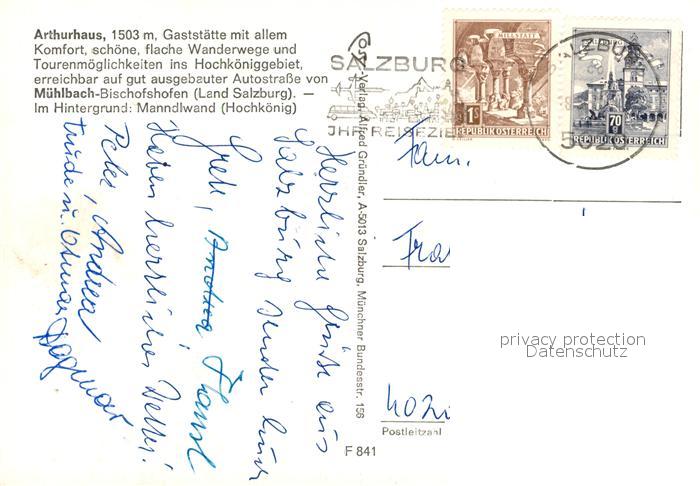 Arthurhaus, 1503 m, Gaststätte mit allem
Komfort, schöne, flache Wanderwege und
Tourenmöglichkeiten ins Hochköniggebiet,
erreichbar auf gut ausgebauter Autostraße von
Mühlbach-Bischofshofen (Land Salzburg). —
Im Hintergrund: Manndlwand (Hochkönig)
SALZBURG
IHR REISEZIEL
MILLSTATT
1 S
REPUBLIK ÖSTERREICH
SALZBURG
70 g
REPUBLIK ÖSTERREICH
5020
Verlag Alfred Gründler, A-5013 Salzburg, Münchner Bundesstr. 156
Herzliche Grüße aus
Salzburg senden Euch
Gretl, Andrea Hansl
Haben herrliches Wetter!
Peter, Andrea
Trude u. Otmar
Dagmar
Fam.
Fra
402
Postleitzahl
F 841
privacy protection
Datenschutz